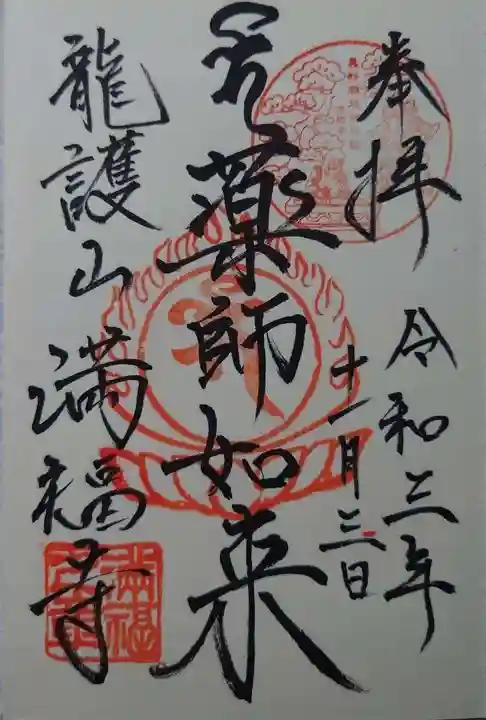 奉拝
令和三年
十一月三日
薬師如来
龍護山
満福寺
満福寺